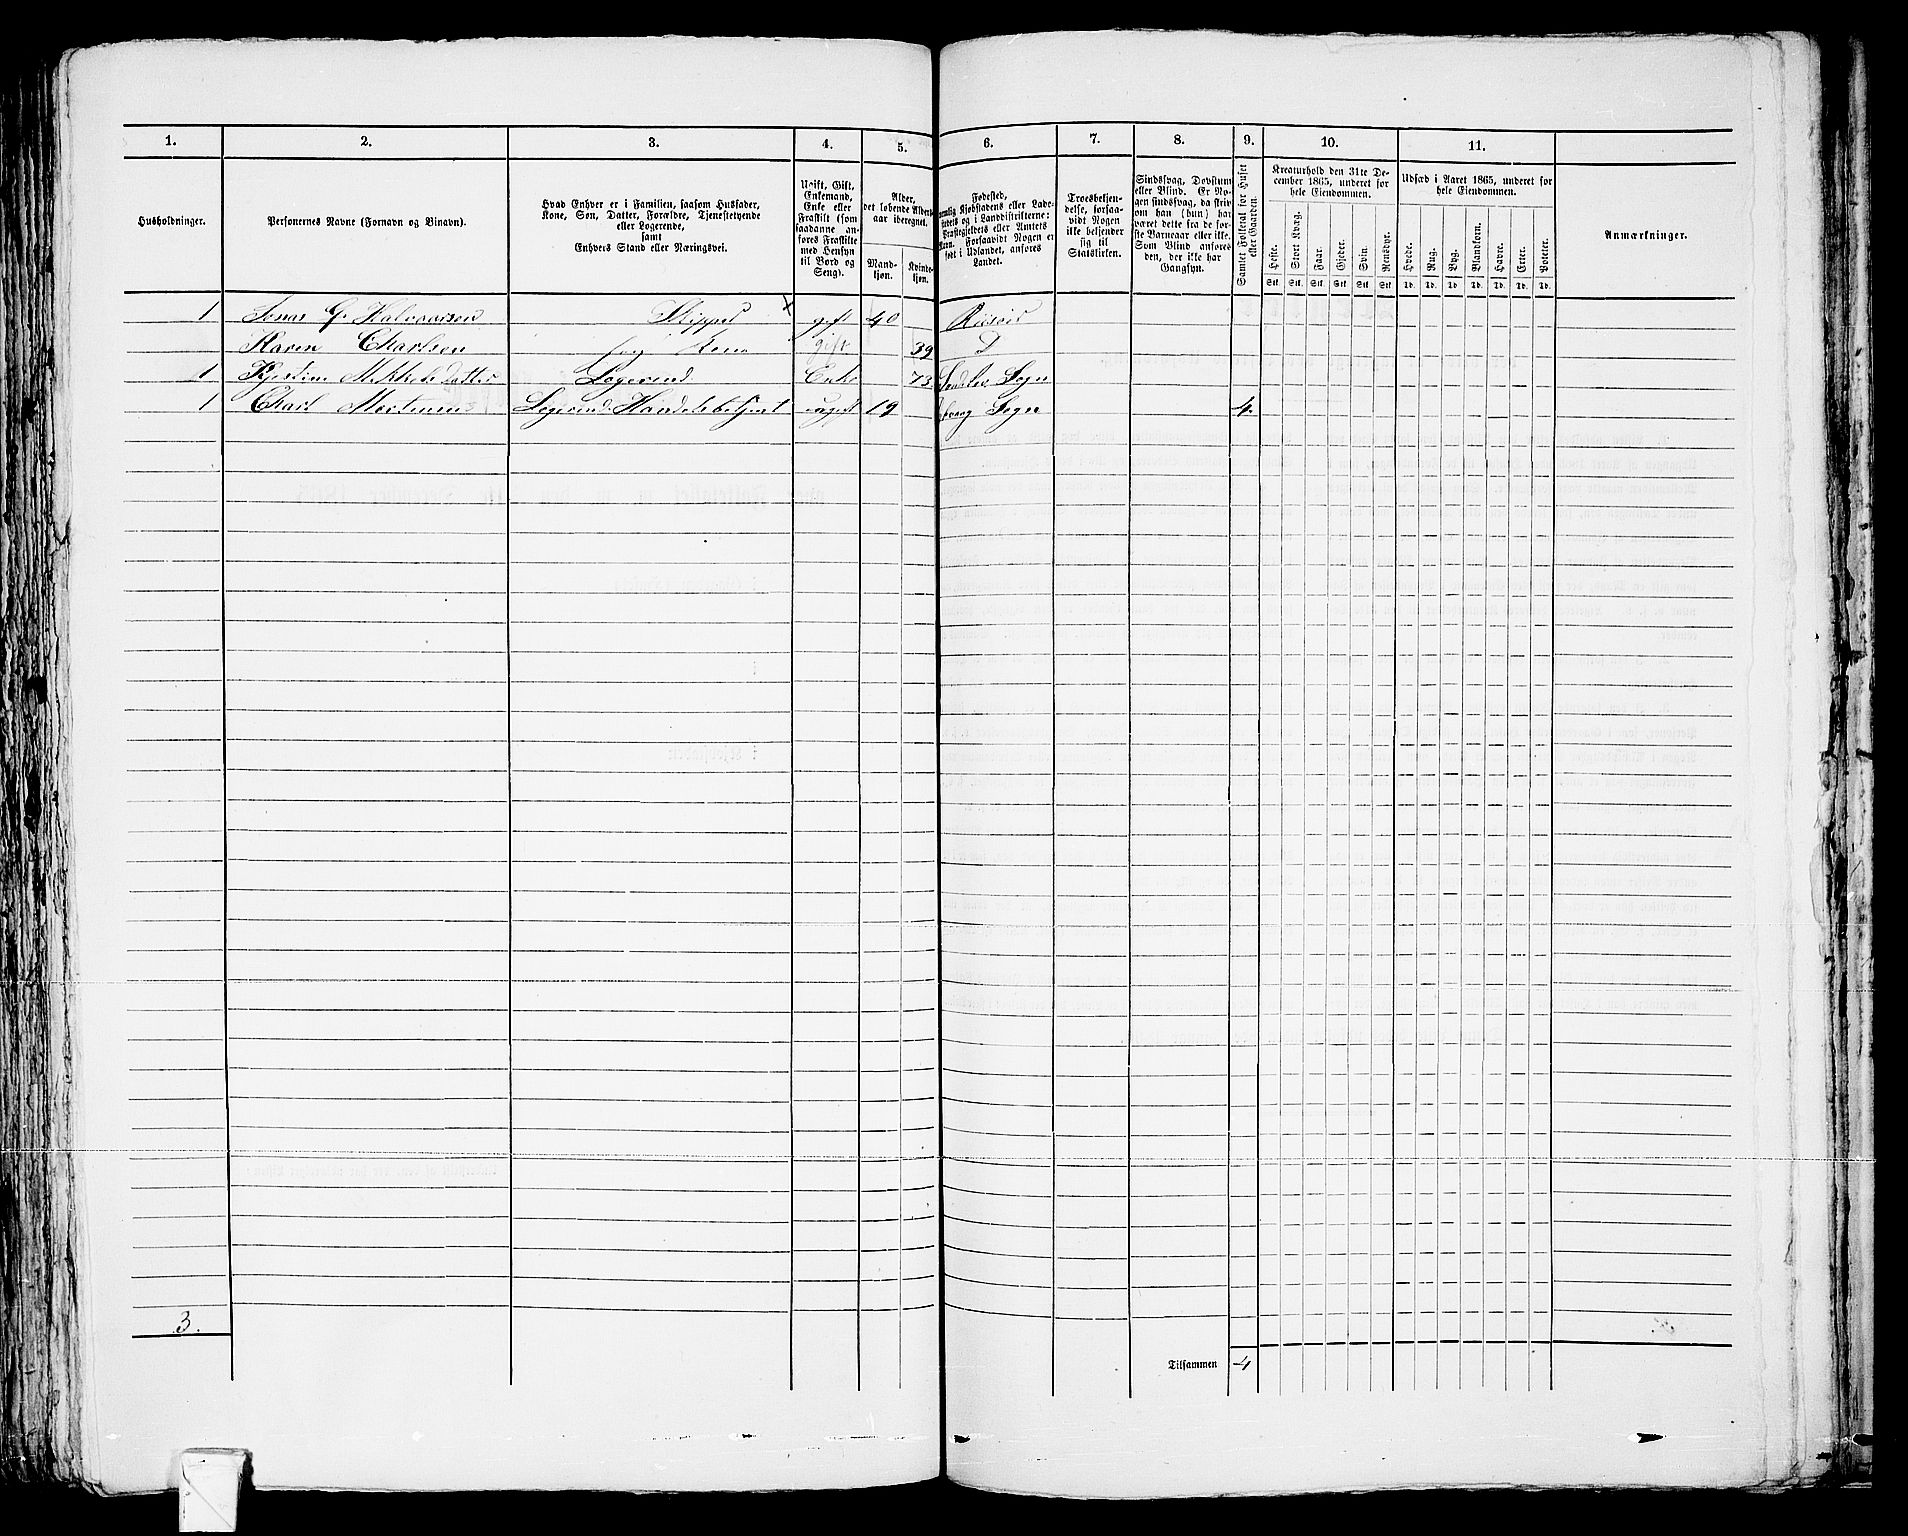 1. 2. 3. 4. 5. 6. 7. 8. 9. 10. 11.
Husholdninger.
Personernes Navne (Fornavn og Binavn).
Hvad Enhver er i Familien, saasom Husfader,
Kone, Søn, Datter, Forældre, Tjenestetyende
eller Logerende,
samt
Enhvers Stand eller Næringsvei.
Ugift, Gift,
Enkemand,
Enke eller
Fraskilt (som
saadanne an-
føres Fraskilte
med Hensyn
til Bord og
Seng).
Alder,
det løbende Alders-
aar iberegnet.
Mand-
kjøn.
Kvinde-
kjøn.
Fødested,
nemlig Kjøbstadens eller Lade-
stedets og i Landdistrikterne:
Præstegjeldets eller Amtets
Navn. Forsaavidt Nogen er
født i Udlandet, anføres
Landet.
Troesbekjen-
delse, forsaa-
vidt Nogen
ikke bekjender
sig til
Statskirken.
Sindssvag, Døvstum
eller Blind. Er No-
gen sindssvag, da skriv
om han (hun) har
været dette fra de før-
ste Barneaar eller ikke.
Som Blind anføres
den, der ikke har
Gangsyn.
Samlet Folketal for Huset
eller Gaarden.
Kreaturhold den 31te De-
cember 1865, underet for
hele Eiendommen.
Heste. Stort Kvæg. Faar. Gjeder. Svin. Rensdyr.
Stk. Stk. Stk. Stk. Stk. Stk.
Udsæd i Aaret 1865, underet for
hele Eiendommen.
Hvede. Rug. Byg. Blandkorn. Havre. Erter. Poteter.
Td. Td. Td. Td. Td. Td. Td.
Anmærkninger.
1 Jonas G. Halvorsen Skipper x gift 40 Risøer
Karen Charlsen hans Kone gift 39 D
1 Kjestine Mikkelsdatter Logerend Enke 73 Sogn
1 Charl Mortensen Logerend. Handelsbetjent ugift 19 Sogn 4.
3.
Tilsammen 4